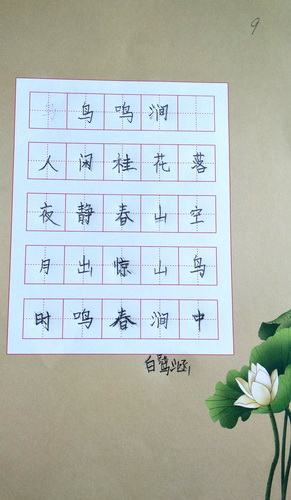 9
鸟鸣涧
人闲桂花落
夜静春山空
月出惊山鸟
时鸣春涧中